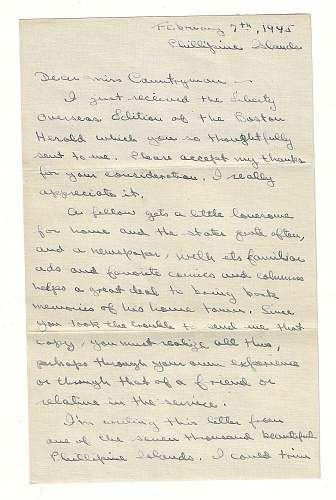 February 7th, 1945
Phillipine Islands
Dear Miss Countryman —
I just received the Liberty
Overseas Edition of the Boston
Herald which you so thoughtfully
sent to me. Please accept my thanks
for your consideration. I really
appreciate it.
A fellow gets a little lonesome
for home and the states quite often,
and a newspaper, with its familiar
ads and favorite comics and columns
helps a great deal to bring back
memories of his home town. Since
you took the trouble to send me that
copy, you must realize all this,
perhaps through your own experience
or through that of a friend or
relative in the service.
I'm writing this letter from
one of the seven thousand beautiful
Phillipine Islands. I could